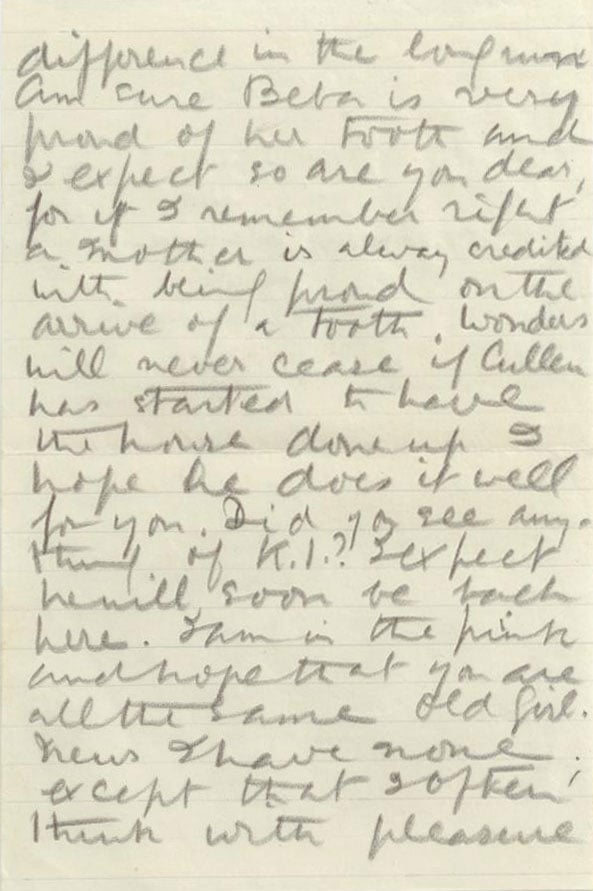 difference in the long run
Am sure Beba is very
proud of her tooth and
I expect so are you dear,
for if I remember right
a mother is alway credited
with being proud on the
arrive of a tooth. Wonders
will never cease if Cullen
has started to have
the house done up I
hope he does it well
for you. Did you see any-
thing of K.I.? I expect
he will soon be back
here. I am in the pink
and hope that you are
all the same old Girl.
News I have none
except that I often
think with pleasure